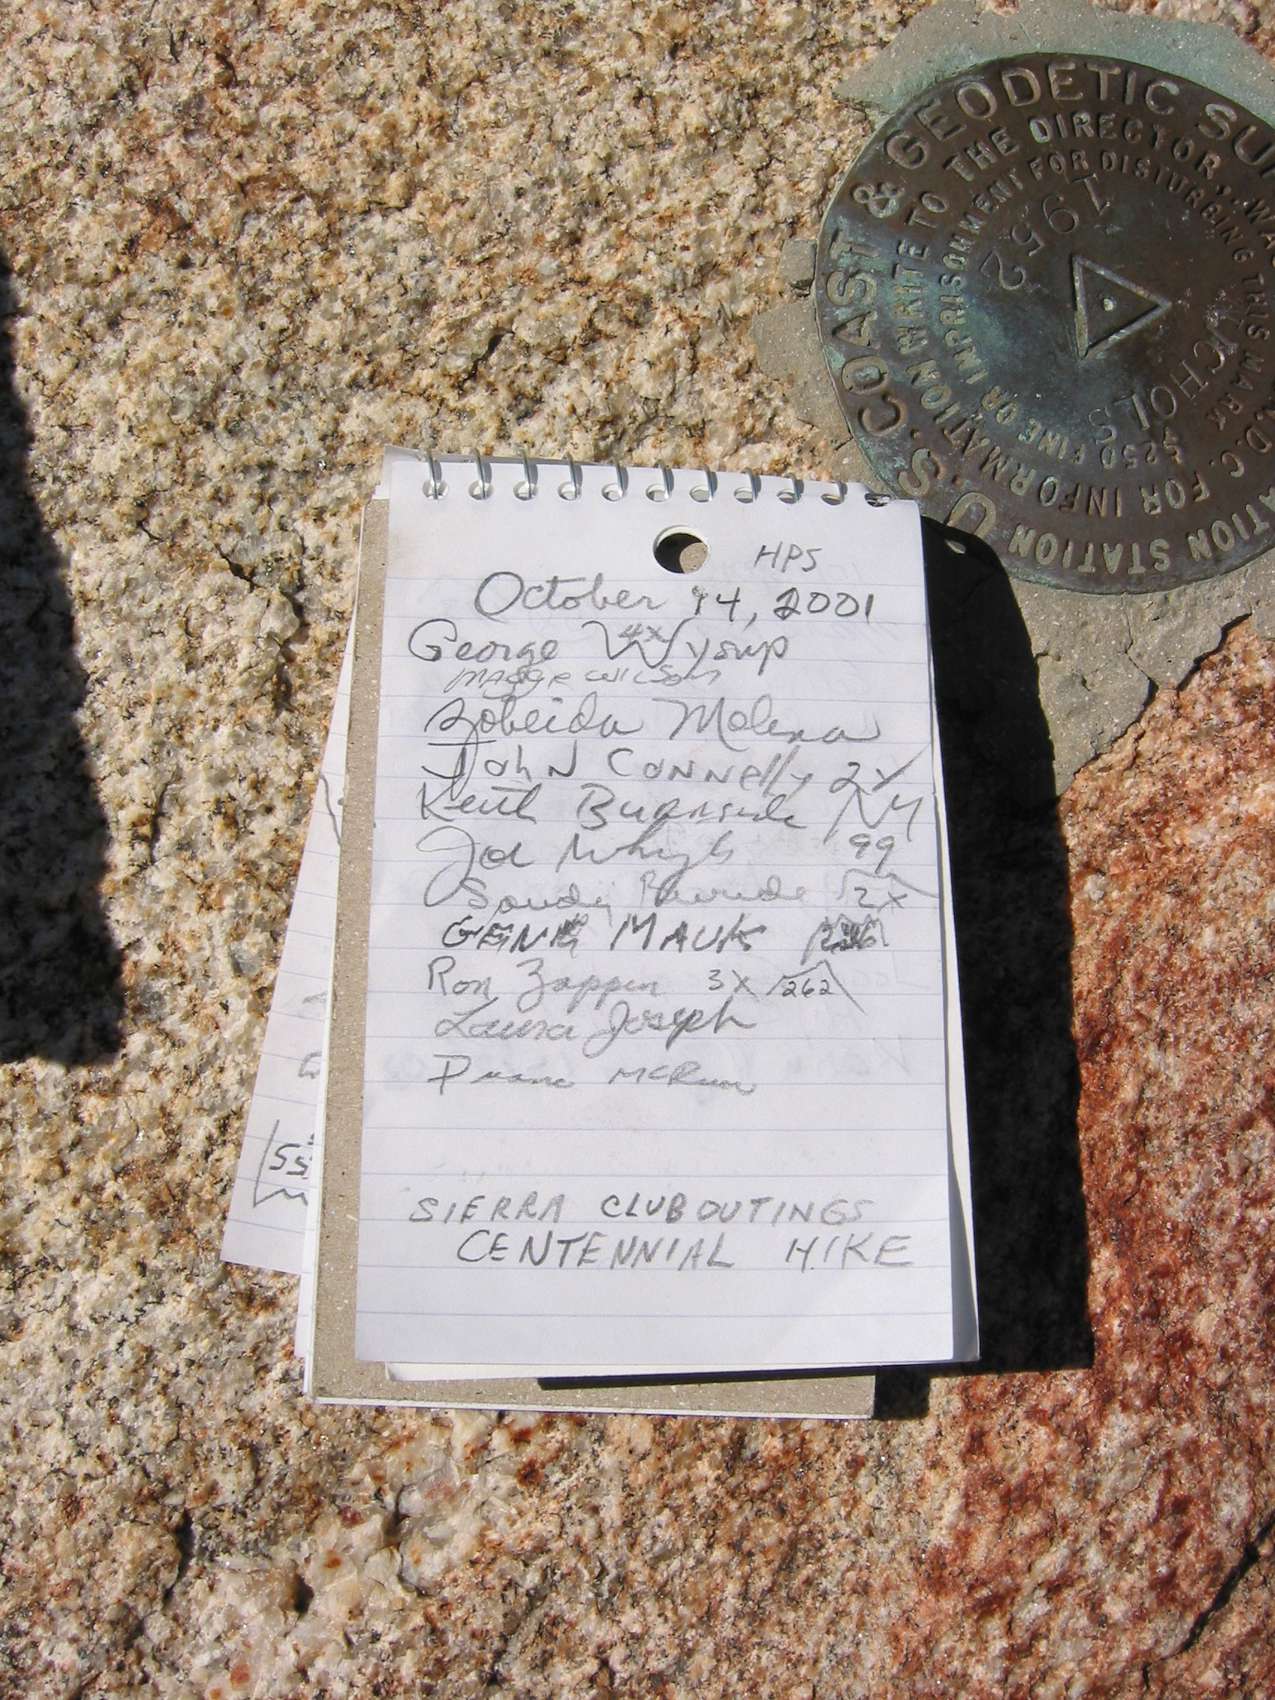 HPS
October 14, 2001
George Wysup 4x
Maggie Wilson
Zobeida Molina
John Connelly 2x
Keith Burnside
Joe Whyte 99
Sandy Burnside 2x
GENE MAUK
Ron Zappen 3x 262
Laura Joseph
Duane McRuer
SIERRA CLUB OUTINGS
CENTENNIAL HIKE
55
U.S. COAST & GEODETIC
STATION
WRITE TO THE DIRECTOR,
D.C. FOR INFORMATION
$250 FINE OR IMPRISONMENT FOR DISTURBING THIS MARK
1952
NICHOLS